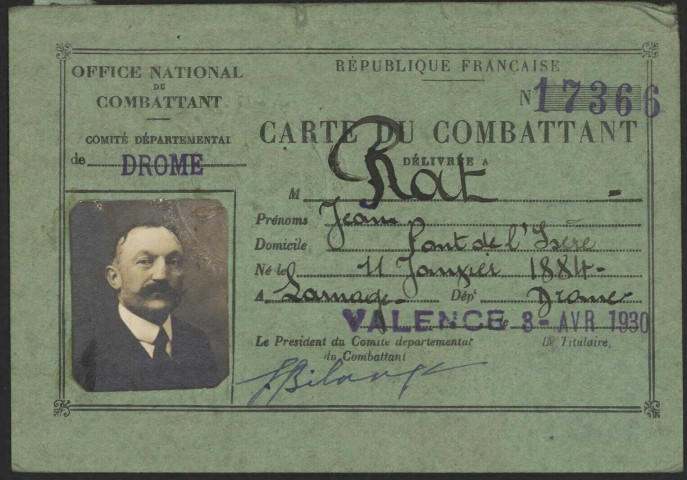 OFFICE NATIONAL
DU
COMBATTANT
COMITÉ DÉPARTEMENTAL
de DROME
RÉPUBLIQUE FRANÇAISE
N° 17366
CARTE DU COMBATTANT
DÉLIVRÉE A
M Rat
Prénoms Jean
Domicile Pont de l'Isère
Né le 11 Janvier 1884
A Larnage Dépt Drome
VALENCE le 8 - AVR 1930
Le Président du Comité départemental
du Combattant
Le Titulaire,